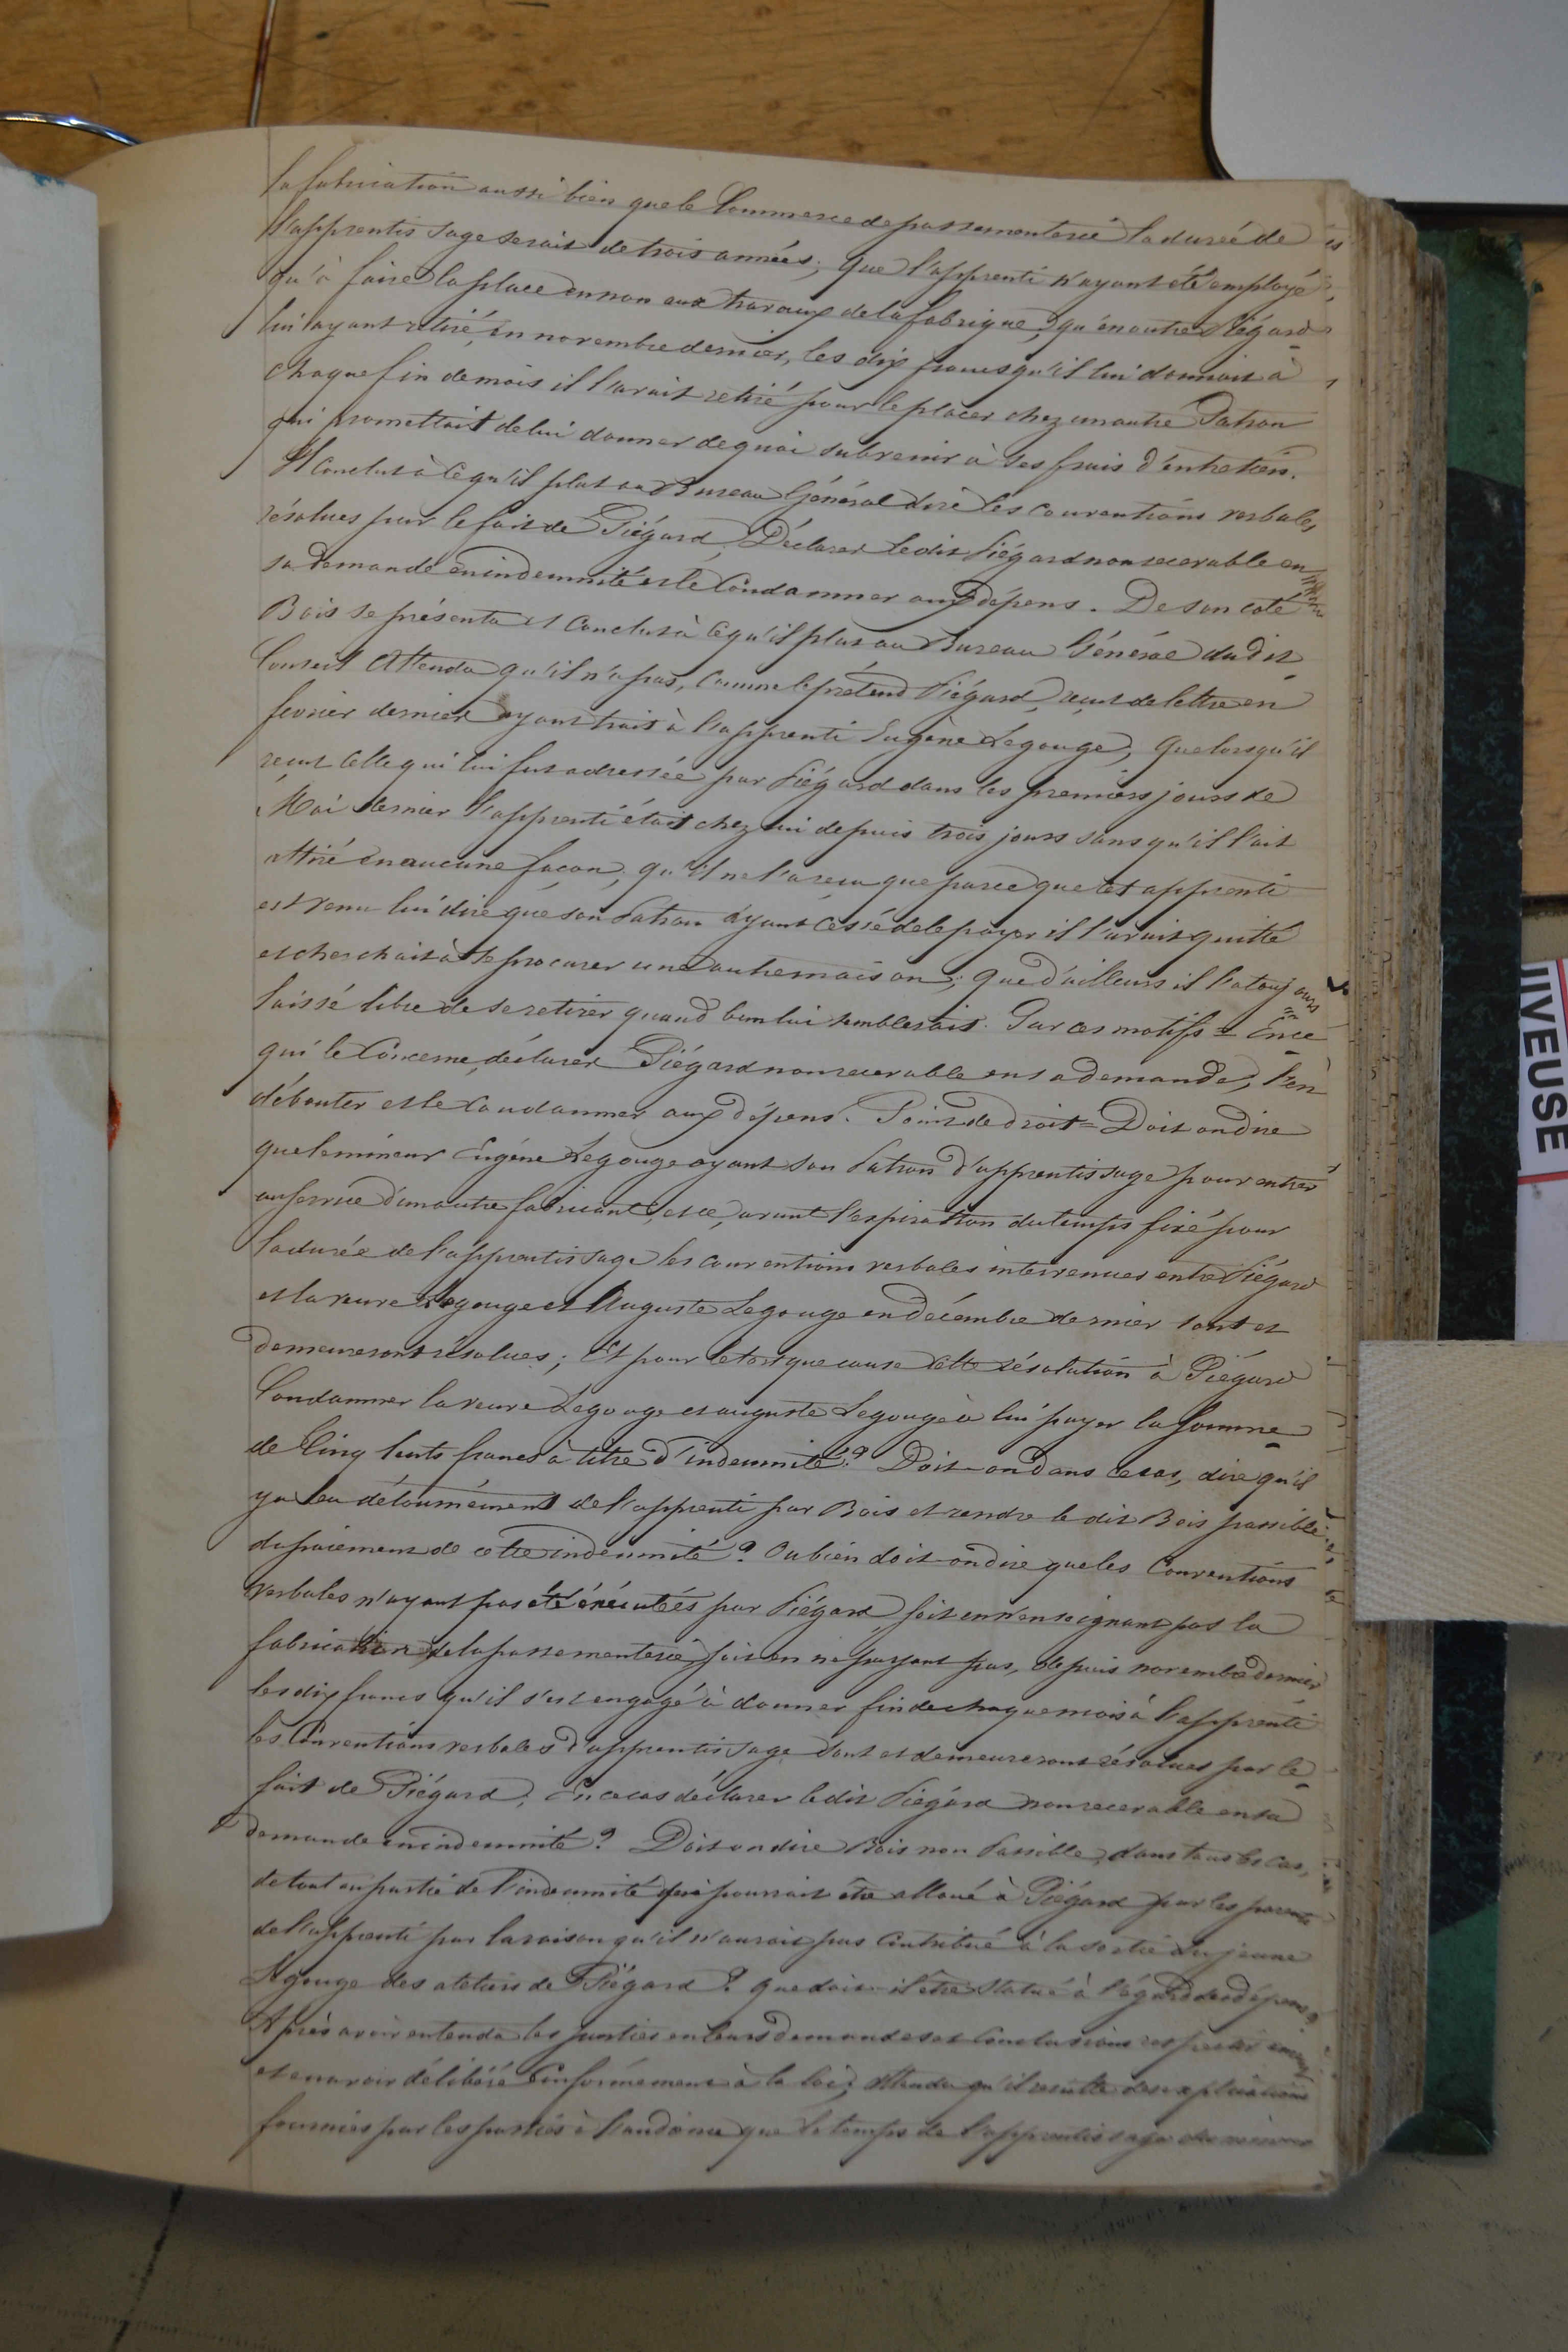 la fabrication aussi bien que le Commerce de passementerie la durée de
l'apprentissage serait de trois années; que l'apprenti n'ayant été employé
qu'à faire la place en non aux travaux de la fabrique; qu'en outre Piégard
lui ayant retiré, en novembre dernier, les dix francs qu'il lui donnait à
chaque fin de mois il l'avait retiré pour le placer chez un autre Patron
qui promettait de lui donner de quoi subvenir à ses frais d'entretien.
Il Conclut à ce qu'il plut au Bureau Général dire les conventions verbales
résolues par le fait de Piégard, Déclarer le dit Piégard non recevable en
sa demande en indemnité et le Condamner aux dépens. De son coté
Bois se présenta et Conclut à ce qu'il plut au Bureau Général du dit
Conseil Attendu qu'il n'a pas, comme le prétend Piégard, reçut de lettre en
février dernier ayant trait à l'apprenti Eugène Legouge, que lorsqu'il
reçut celle qui lui fut adressée par Piégard dans les premiers jours de
Mai dernier l'apprenti était chez lui depuis trois jours sans qu'il l'ait
attiré en aucune façon; qu'il ne l'a reçu que parce que cet apprenti
est venu lui dire que son Patron ayant cessé de le payer il l'avait quitté
et cherchait à se procurer une autre maison; que d'ailleurs il l'a toujours
laissé libre de se retirer quand bon lui semblerait. Par ces motifs = En ce
qui le Concerne, déclarer Piégard non recevable en sa demande, l'en
débouter et le Condamner aux dépens. Point de droit = Doit on dire
que le mineur Eugène Legouge ayant son Patron d'apprentissage pour entrer
au service d'un autre fabricant, et ce, avant l'expiration du temps fixé pour
la durée de l'apprentissage les conventions verbales intervenues entre Piégard
et la veuve Legouge et Auguste Legouge en décembre dernier sont et
demeureront résolues; Et pour le tort que cause cette résolution à Piégard
Condamner la veuve Legouge et auguste Legouge à lui payer la somme
de Cinq Cents francs à titre d'indemnité? Doit-on dans ce cas, dire qu'il
y a eu détournement de l'apprenti par Bois et rendre le dit Bois passible
du paiement de cette indemnité? Ou bien doit-on dire que les Conventions
verbales n'ayant pas été éxécutées par Piégard soit en n'enseignant pas la
fabrication de la passementerie, soit en ne payant pas, depuis novembre dernier
les dix francs qu'il s'est engagé à donner fin de chaque mois à l'apprenti
les Conventions verbales d'apprentissage sont et demeureront résolues par le
fait de Piégard; En ce cas déclarer le dit Piégard non recevable en sa
demande en indemnité? Doit on dire Bois non Passible, dans tous les cas,
de tout ou partie de l'indemnité qui pourrait être alloué à Piégard par les parents
de l'apprenti par la raison qu'il n'aurait pas Contribué à la sortie du jeune
Legouge des ateliers de Piégard? que doit-il être Statué à l'égard des dépens?
Après avoir entendu les parties en leurs demandes et Conclusions respectivement
et en avoir délibéré Conformément à la loi; Attendu qu'il résulte des explications
fournies par les parties à l'audience que le temps de l'apprentissage du mineur
IVEUSE